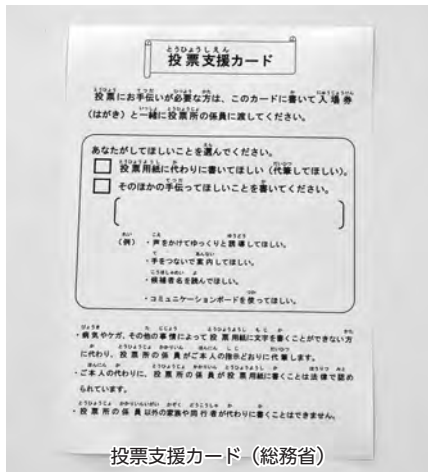 とうひょうしえん
投票支援カード
投票にお手伝いが必要な方は、このカードに書いて入場券
(はがき)と一緒に投票所の係員に渡してください。
あなたがしてほしいことを選んでください。
投票用紙に代わりに書いてほしい(代筆してほしい)。
そのほかの手伝ってほしいことを書いてください。
(例)・声をかけてゆっくりと誘導してほしい。
・手をつないで案内してほしい。
・候補者名を読んでほしい。
・コミュニケーションボードを使ってほしい。
・病気やケガ、その他の事情によって投票用紙に文字を書くことができない方
に代わり、投票所の係員がご本人の指示どおりに代筆します。
・ご本人の代わりに、投票所の係員が投票用紙に書くことは法律で認め
られています。
・投票所の係員以外の家族や同行者が代わりに書くことはできません。
投票支援カード(総務省)